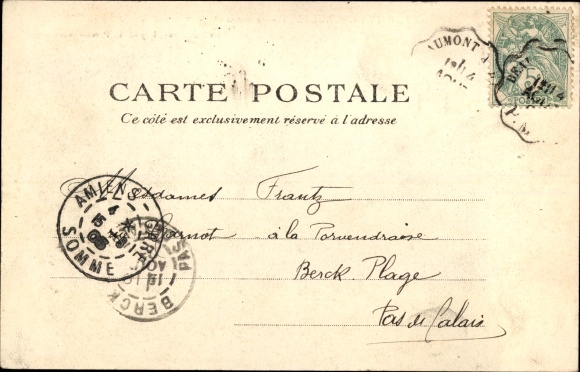 CARTE POSTALE
Ce côté est exclusivement réservé à l'adresse
Mesdames Frantz
à la Porvendraise
Berck Plage
Pas de Calais
AMIENS
SOMME
BERCK
PAS
AUMONT A
BEAU